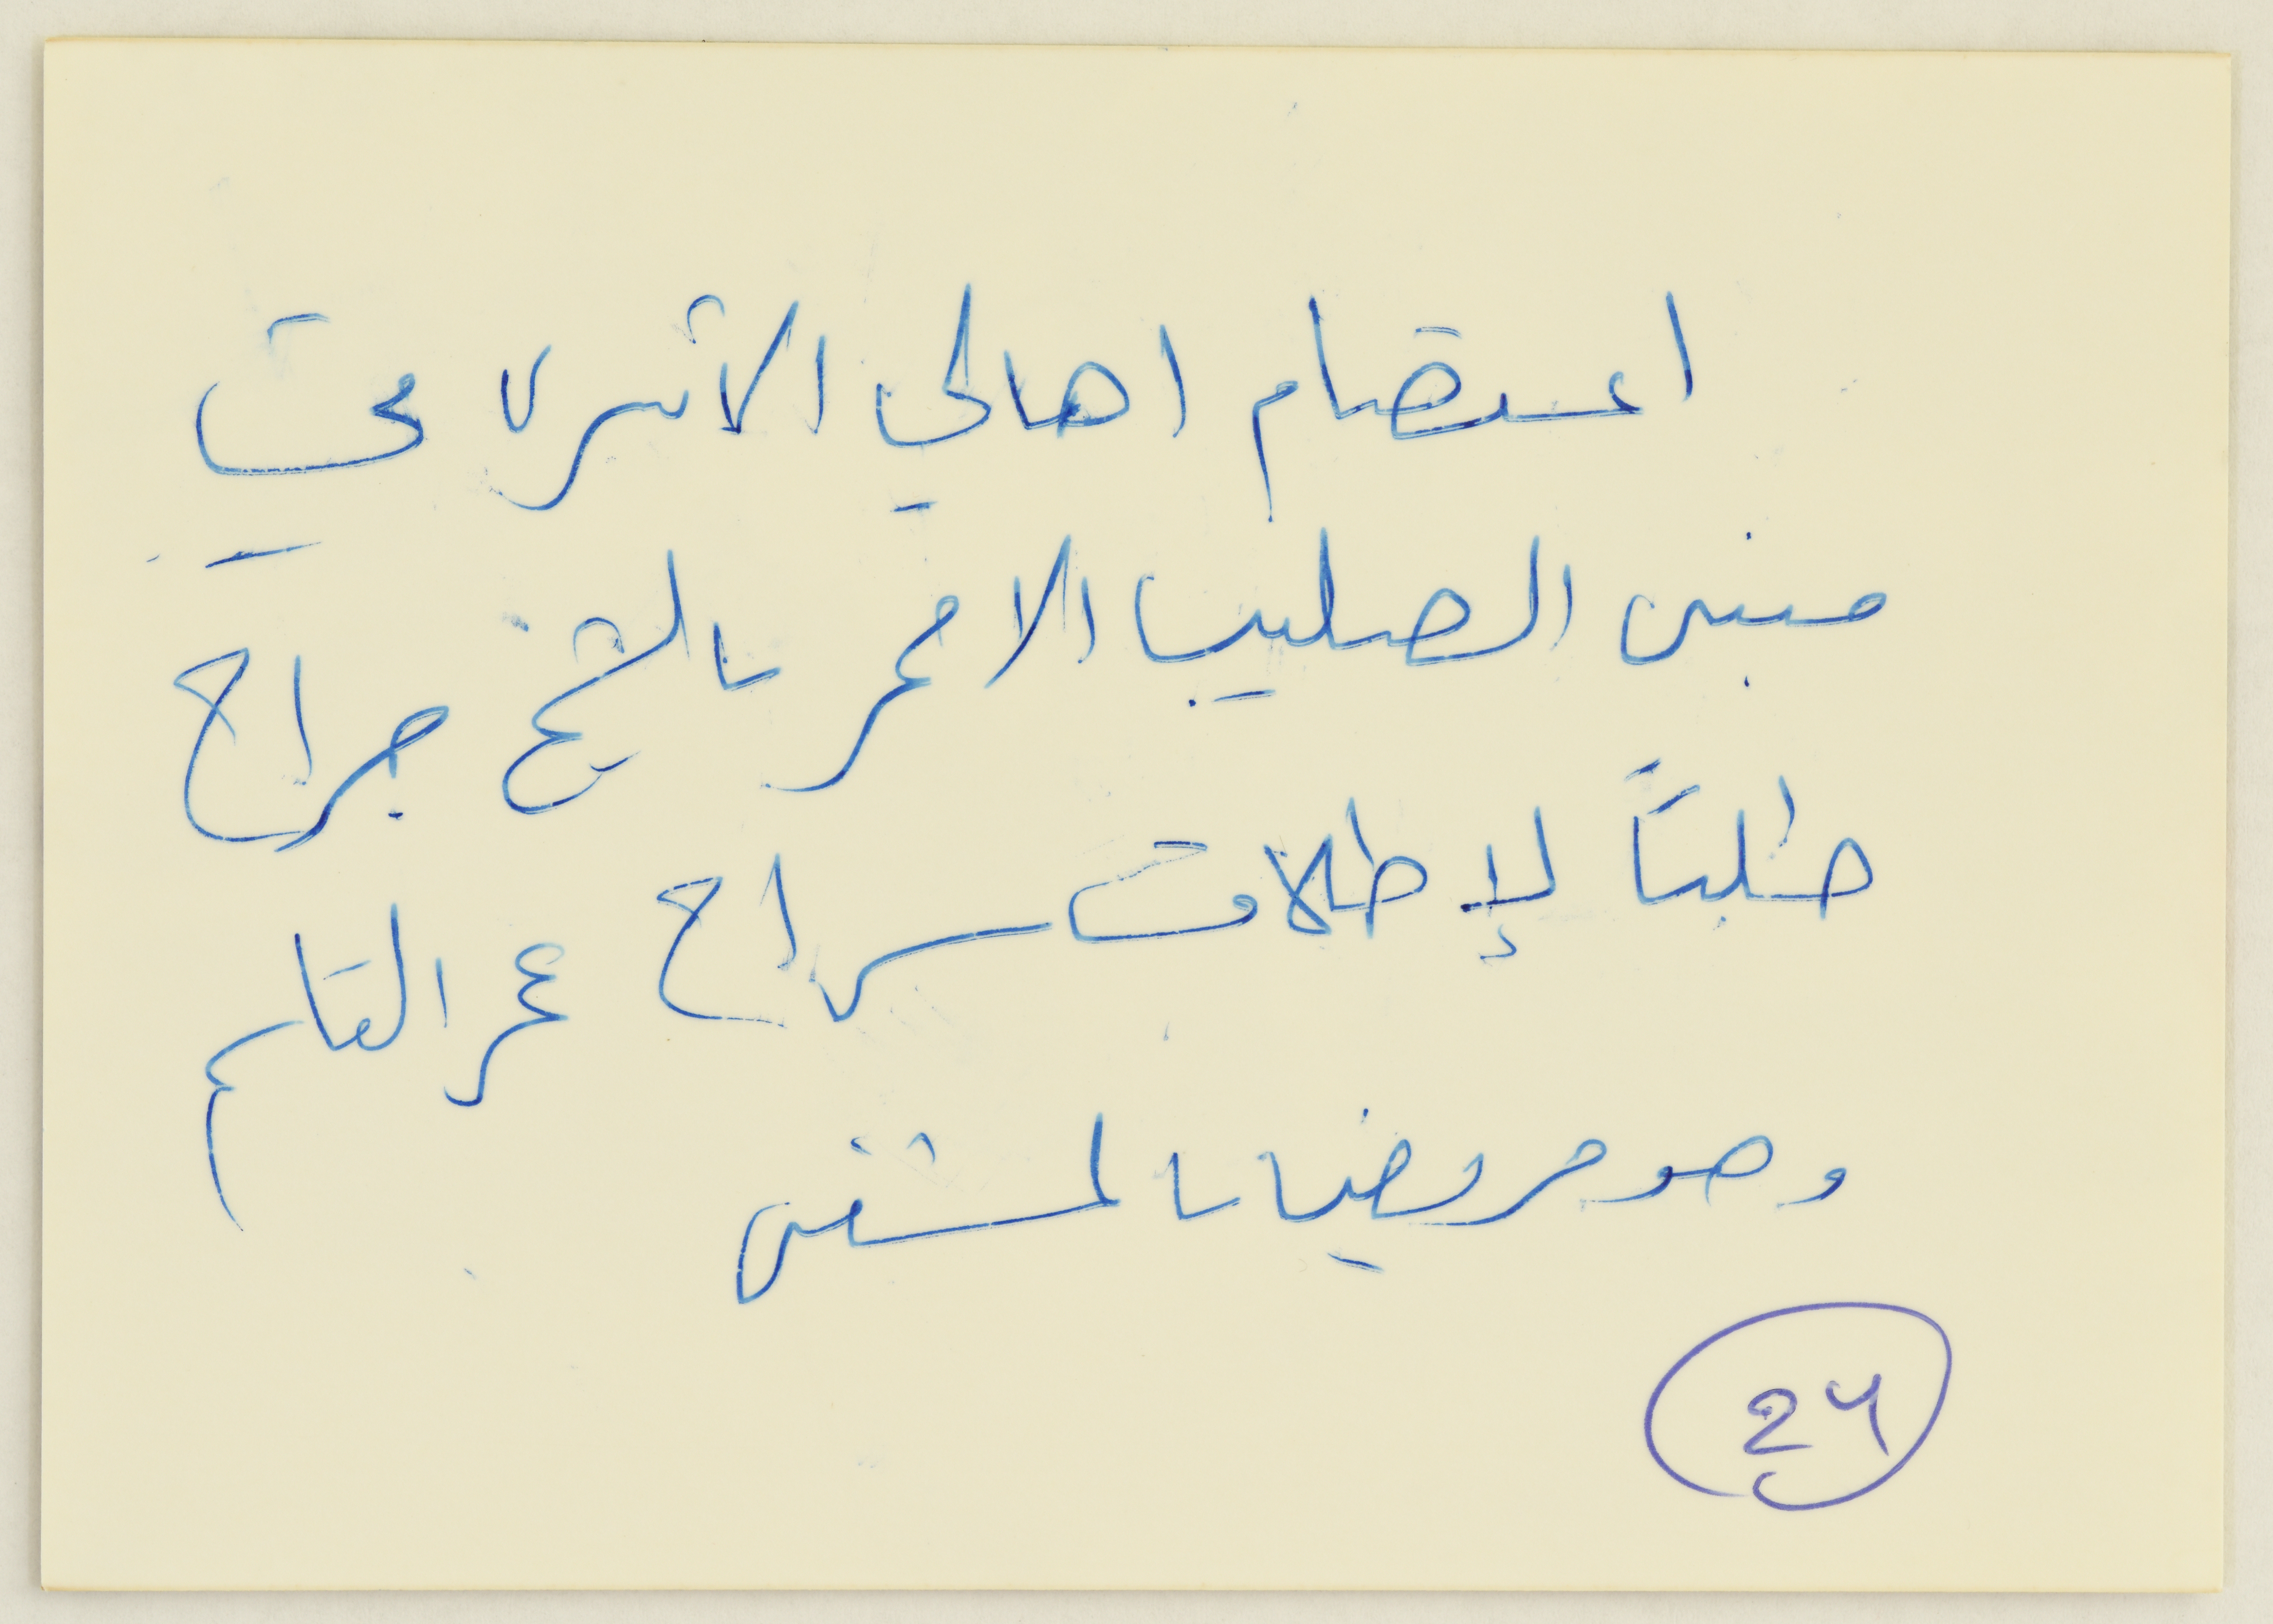 اعتصام اهالي الأسرى في
مبنى الصليب الاحمر بالشيخ جراح
طلباً لإطلاق سراح عمر القاسم
وهو مريضاً بالمستشفى
24